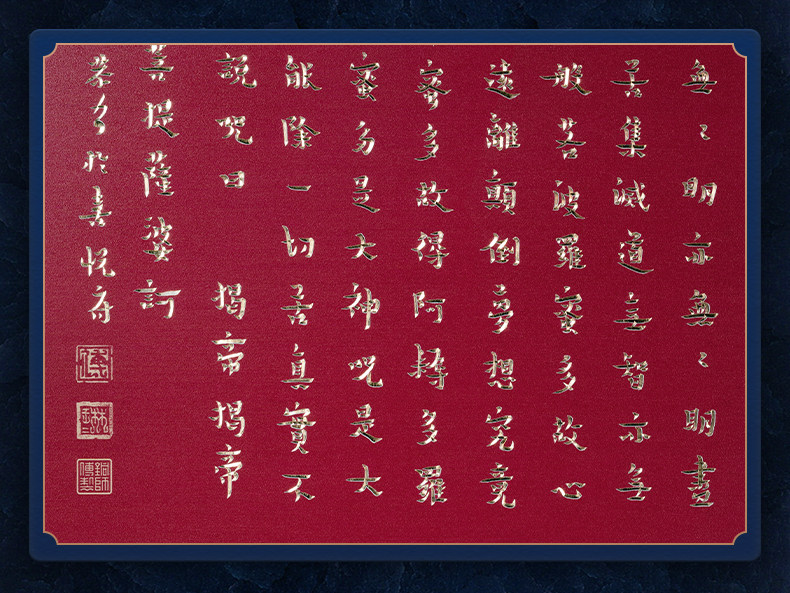 無〻明亦無〻明盡
苦集滅道無智亦無
般若波羅蜜多故心
遠離顛倒夢想究竟
蜜多故得阿耨多羅
蜜多是大神呪是大
能除一切苦真實不
說呪曰 揭帝揭帝
菩提薩婆訶
於喜悅
銅師傅製